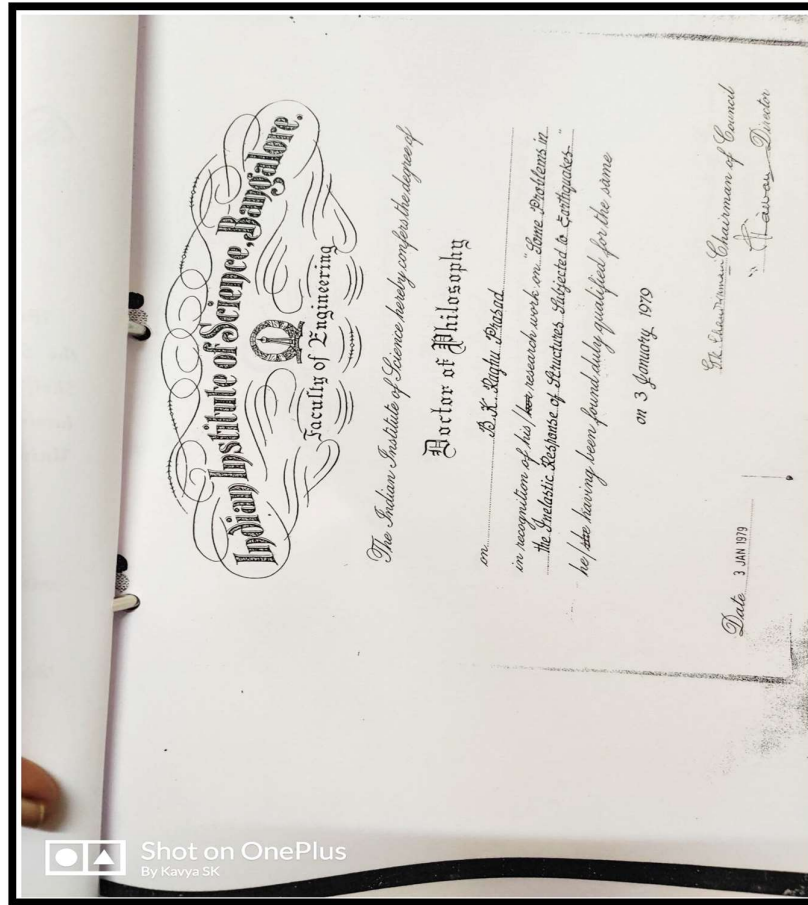 Indian Institute of Science, Bangalore.
Faculty of Engineering
The Indian Institute of Science hereby confers the degree of
Doctor of Philosophy
on B.K. Raghu Prasad
in recognition of his/her research work on "Some Problems in
the Inelastic Response of Structures Subjected to Earthquakes"
he/she having been found duly qualified for the same
on 3 January 1979
Chairman of Council
Date 3 JAN 1979
Director
Shot on OnePlus
By Kavya SK